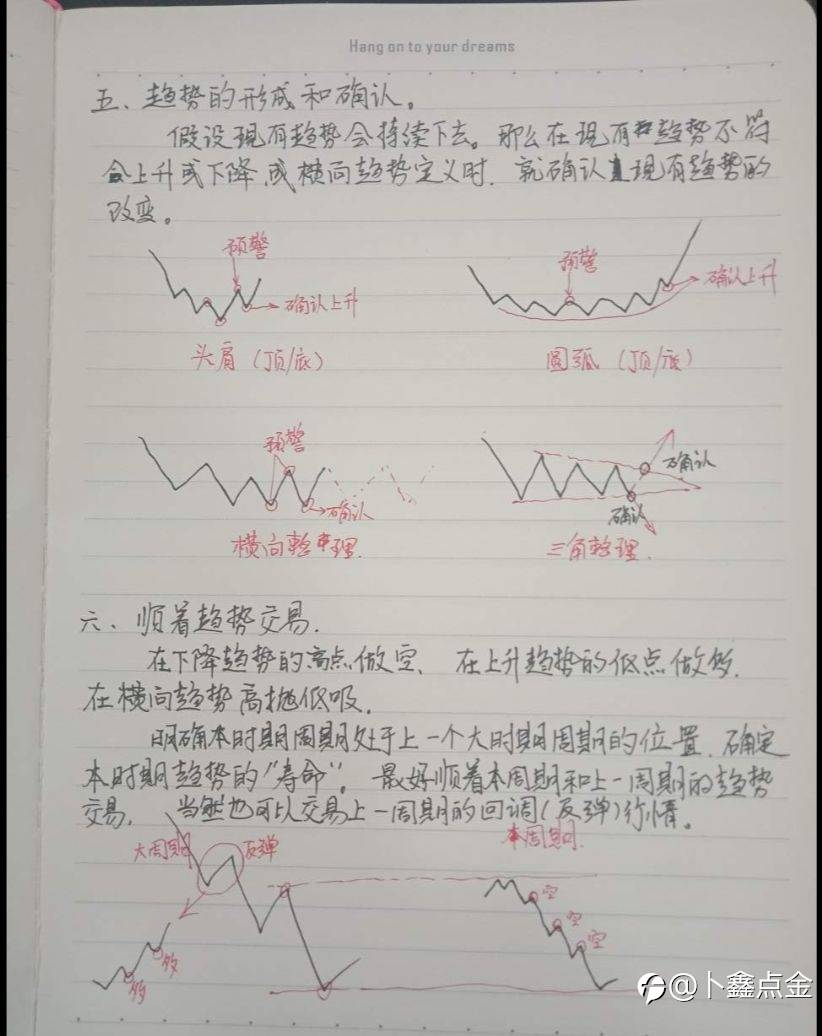 Hang on to your dreams
五、趋势的形成和确认。
假设现有趋势会持续下去。那么在现有趋势不符
合上升或下降、或横向趋势定义时.就确认现有趋势的
改变。
预警
确认上升
头肩(顶/底)
预警
确认上升
圆弧(顶/底)
预警
确认
横向整理.
确认
确认
三角整理.
六、顺着趋势交易.
在下降趋势的高点做空、在上升趋势的低点做多.
在横向趋势高抛低吸.
明确本时期周期处于上一个大时期周期的位置.确定
本时期趋势的"寿命"。最好顺着本周期和上一周期的趋势
交易,当然也可以交易上一周期的回调(反弹)行情。
大周期
反弹
多
多
本周期
空
空
空
@卜鑫点金